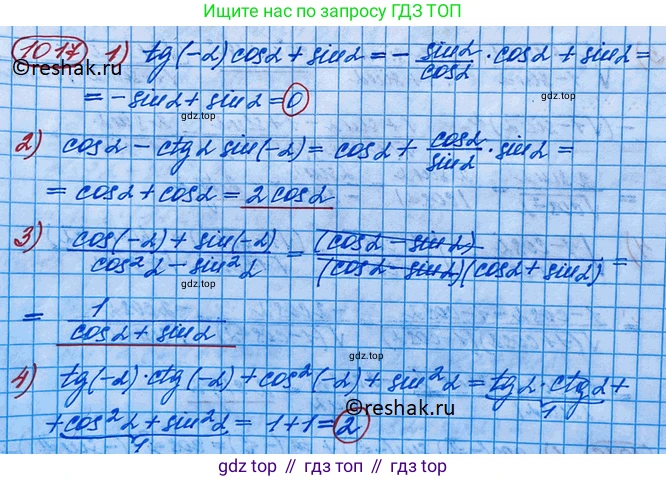 Ищите нас по запросу ГДЗ ТОП
1017 1) tg(-α) cosα + sinα = - sinα/cosα · cosα + sinα =
= -sinα + sinα = 0
gdz.top
©reshak.ru
2) cosα - ctgα sin(-α) = cosα + cosα/sinα · sinα =
= cosα + cosα = 2cosα
gdz.top
3) cos(-α) + sin(-α)/cos²α - sin²α = (cosα - sinα)/(cosα - sinα)(cosα + sinα) =
gdz.top
= 1/cosα + sinα
gdz.top
4) tg(-α)·ctg(-α) + cos²(-α) + sin²α = tgα·ctgα +
1
+ cos²α + sin²α = 1+1 = 2
1
©reshak.ru
gdz.top // гдз.топ // gdz.top // гдз.топ